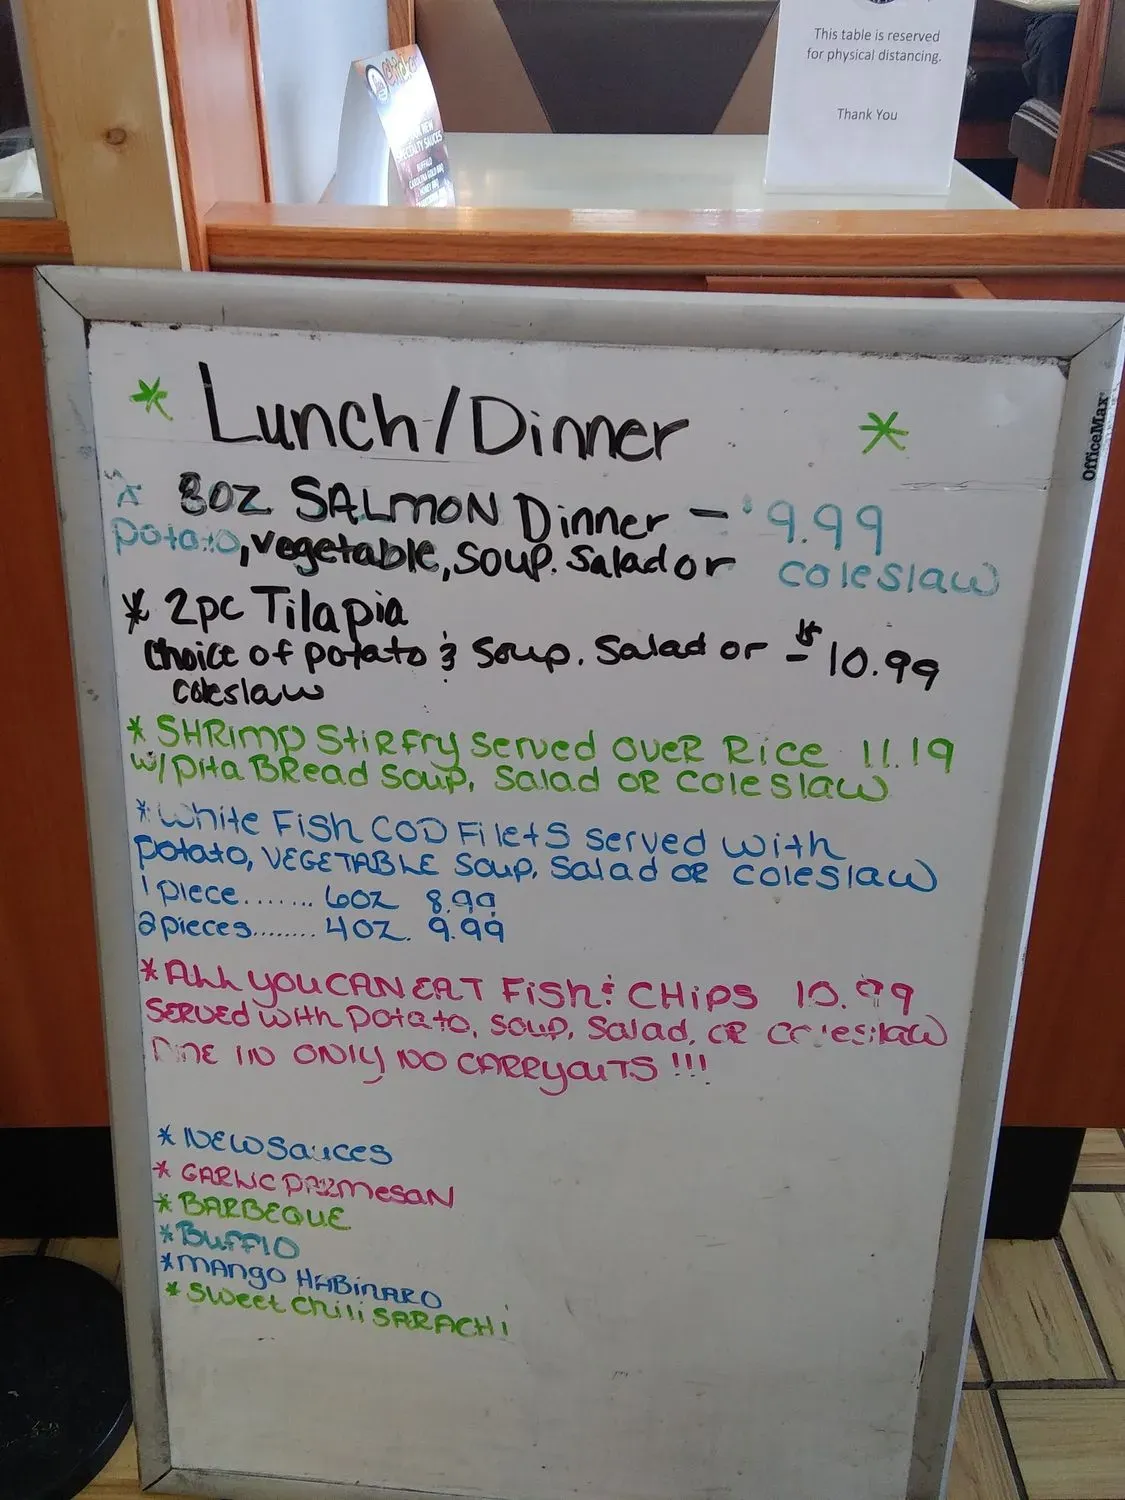 This table is reserved
for physical distancing.
Thank You
NEW
SPECIALTY SAUCES
BUFFALO
CAROLINA GOLD BBQ
HONEY BBQ
OfficeMax
* Lunch/Dinner *
8oz SALMON Dinner - $9.99
potato, vegetable, soup. Salad or coleslaw
* 2pc Tilapia
Choice of potato & Soup. Salad or - $10.99
coleslaw
* SHRimp StiRfRy Served OVER Rice 11.19
w/ pita BRead Soup, Salad OR coleslaw
* White FisH COD FiletS Served with
potato, VEGETABLE Soup, Salad OR coleslaw
1 piece....... 6oz 8.99
2 pieces........ 4oz. 9.99
* ALL YOU CAN EAT FisH & CHipS 10.99
SERVED with potato, Soup, Salad, OR coleslaw
DINE IN ONLY NO CARRYOUTS !!!
* NEW Sauces
* GARLIC PARMESAN
* BARBEQUE
* Bufflo
* MANgo HABiNARO
* Sweet Chili SARACHi